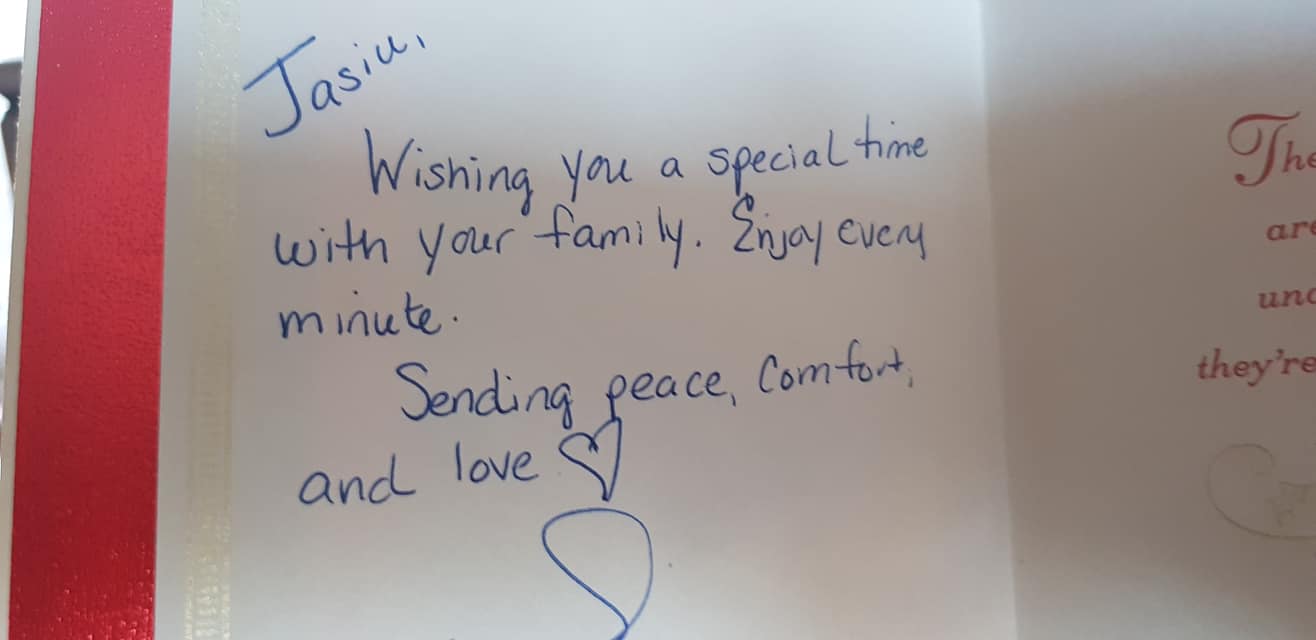 Jasiu,
Wishing you a special time
with your family. Enjoy every
minute.
Sending peace, Comfort,
and love
The
are
they're